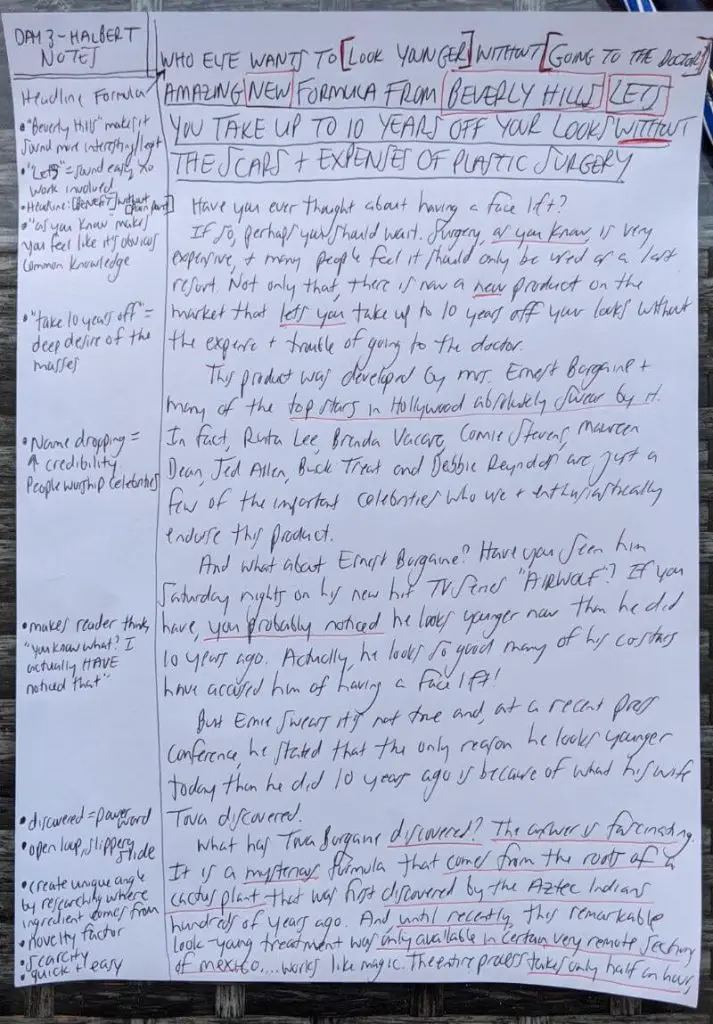 DAY 3 - HALBERT
NOTES
Headline Formula
• "Beverly Hills" makes it
sound more interesting/legit
• "LETS" = sound easy no
work involved
• Headline: [BENEFIT] without
[pain point]
• "as you know makes
you feel like it's obvious
common knowledge
• "take 10 years off" =
deep desire of the
masses
• Name dropping =
↑ credibility
People worship celebrities
• makes reader think,
"you know what? I
actually HAVE
noticed that"
• discovered = power word
• open loop, slippery
slide
• create unique angle
by researching where
ingredient comes from
• novelty factor
• scarcity
• quick + easy
WHO ELSE WANTS TO [LOOK YOUNGER] WITHOUT [GOING TO THE DOCTOR]
AMAZING NEW FORMULA FROM BEVERLY HILLS LETS
YOU TAKE UP TO 10 YEARS OFF YOUR LOOKS WITHOUT
THE SCARS + EXPENSES OF PLASTIC SURGERY
Have you ever thought about having a face lift?
If so, perhaps you should wait. Surgery, as you know, is very
expensive, + many people feel it should only be used as a last
resort. Not only that, there is now a new product on the
market that lets you take up to 10 years off your looks without
the expense + trouble of going to the doctor.
This product was developed by mrs. Ernest Borgaine +
many of the top stars in Hollywood absolutely swear by it.
In fact, Ruta Lee, Brenda Vacaro, Connie Stevens, Maureen
Dean, Jed Allen, Buck Treat and Debbie Reynolds are just a
few of the important celebrities who use + enthusiastically
endorse this product.
And what about Ernest Borgaine? Have you seen him
Saturday nights on his new hit TV series "AIRWOLF"? If you
have, you probably noticed he looks younger now than he did
10 years ago. Actually, he looks so good many of his costars
have accused him of having a face lift!
But Ernie swears it's not true and, at a recent press
conference, he stated that the only reason he looks younger
today than he did 10 years ago is because of what his wife
Tova discovered.
What has Tova Borgaine discovered? The answer is fascinating.
It is a mysterious formula that comes from the roots of a
cactus plant that was first discovered by the Aztec Indians
hundreds of years ago. And until recently, this remarkable
look-young treatment was only available in certain very remote sections
of mexico....works like magic. The entire process takes only half an hour,